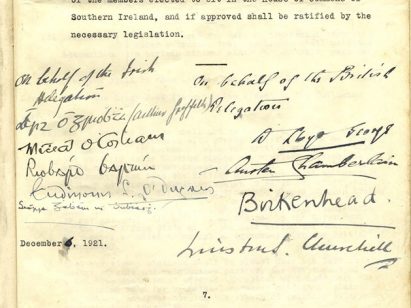 of the members elected to sit in the House of Commons of
Southern Ireland, and if approved shall be ratified by the
necessary legislation.
On behalf of the Irish
Delegation
Art Ó Gríobhtha (Arthur Griffith)
Micheál Ó Coileain
Riobárd Bartún
Eudhmonn S. Ó Dugain
Seórsa Ghabháin Uí Dhubhthaigh
On behalf of the British
Delegation
D Lloyd George
Austen Chamberlain
Birkenhead.
Winston S. Churchill
December 6, 1921.
7.